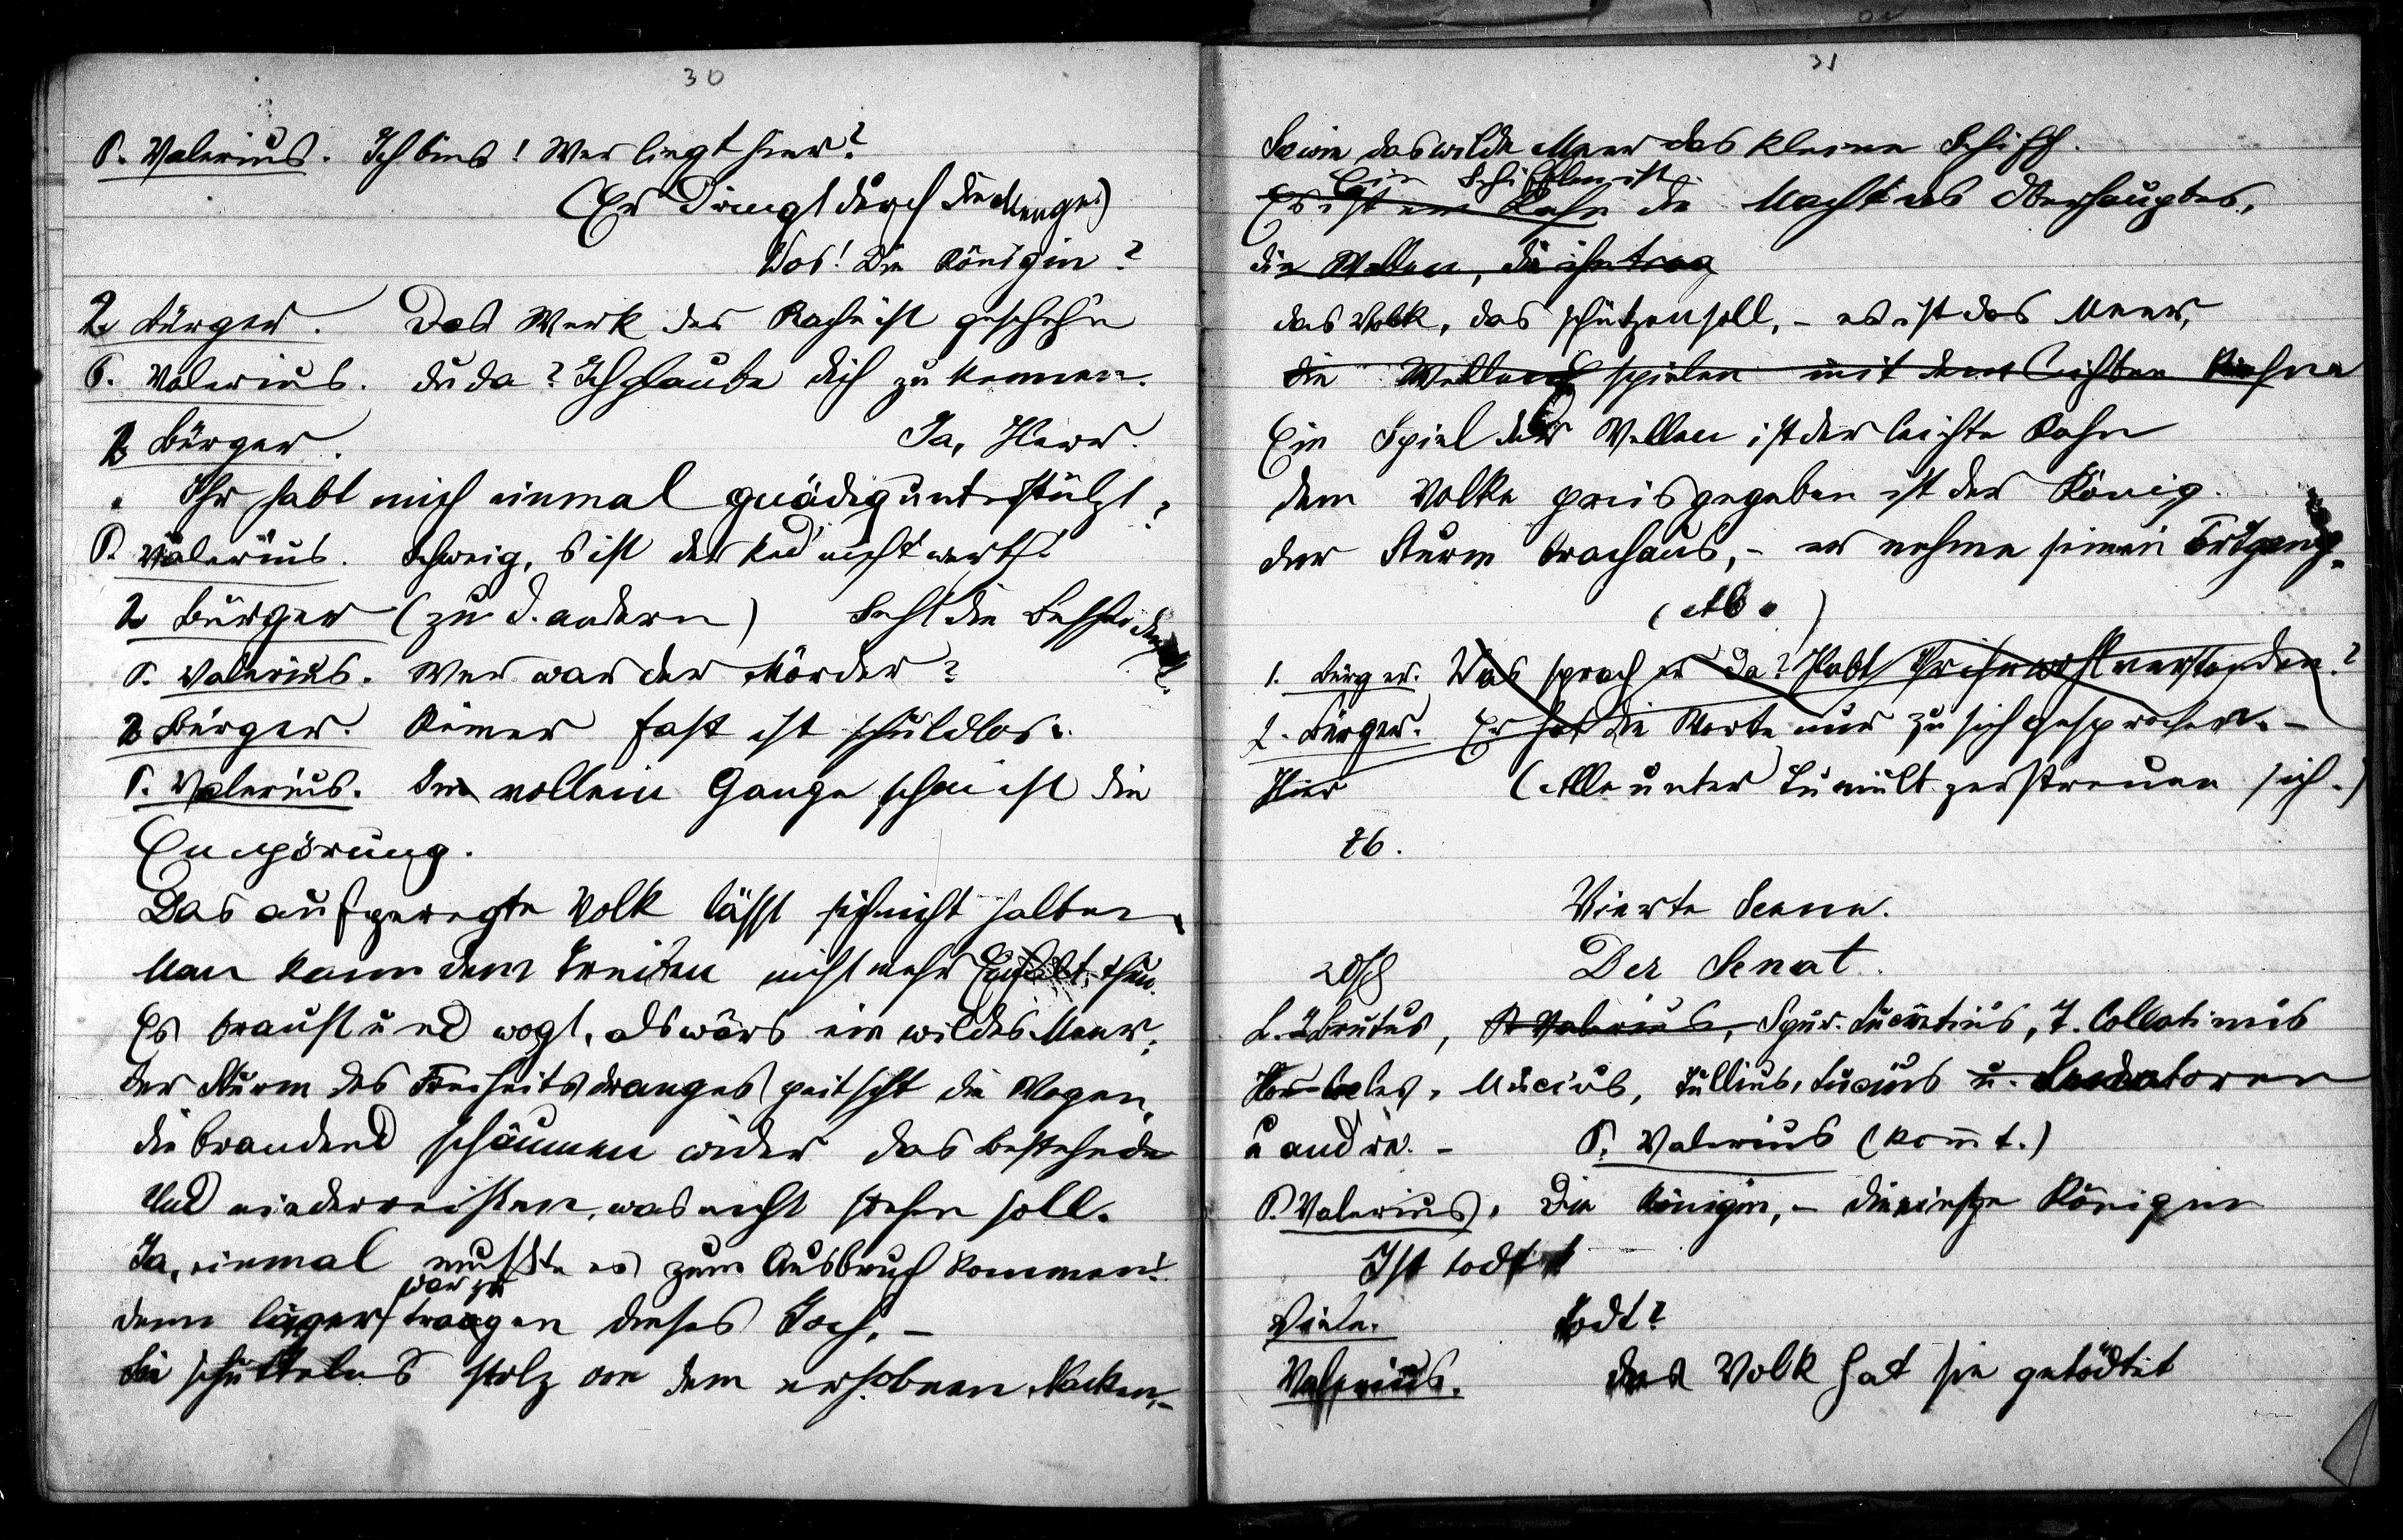 30
P. Valerius. Ich bins! Wer liegt hier?
(Er dringt durch die Menge.)
Was! Die Königin?
2. Bürger. Das Werk der Rache ist geschehn
P. Valerius. du da? Ich glaube dich zu kennen.
2 Bürger. Ja, Herr.
Ihr habt mich einmal gnädig unterstützt;
P. Valerius. Schweig, 's ist der Red' nicht werth!
2 Bürger (zu d. andern) Seht die
P. Valerius. Wer war der Mörder?
2 Bürger. Keiner fast ist schuldlos.
P. Valerius. Im vollen Gange schon ist die
Empörung.
Das aufgeregte Volk lässt sich nicht halten,
Man kann dem Treiben nicht mehr Einhalt thun.
Es braust und wogt, als wärs ein wildes Meer;
der Sturm des Freiheitsdranges peitscht die Wogen,
die brandend schäumen wider das Bestehende
Und niederreissen, was nicht stehen soll.
Ja, einmal musste es zum Ausbruch kommen!
war zu
denn länger tragen dieses Joch, –
Sie schüttelns stolz von dem erhobnen Nacken, –
31
Sowie das wilde Meer das kleine Schiff.
Ein Schifflein ist
Es ist ein Kahn die Macht des Oberhauptes,
die Wellen, die ihn trag
das Volk, das schützen soll, – es ist das Meer,
die Wellen spielen mit dem leichten Kahne
Ein Spiel der Wellen ist der leichte Kahn
dem Volke preisgegeben ist der König.
der Sturm brach aus, – er nehme seinen Fortgang.
(Ab.)
1. Bürger. Was sprach er da? Habt Ihr ihn wohl verstanden?
2. Bürger. Er hat die Worte nur zu sich gesprochen. –
Hier (Alle unter Tumult zerstreuen sich.)
26.
Vierte Scene.
Der Senat.
L. J. Brutus, P. Valerius, Spur. Lucretius, T. Collatinus
Mucius, Tullius, Lucius u. Senatoren
u andre. – P. Valerius (kom̅t.)
P. Valerius. Die Königin, – die einst'ge Königin
Ist todt!
Viele. Todt?
Valerius. das Volk hat sie getödtet